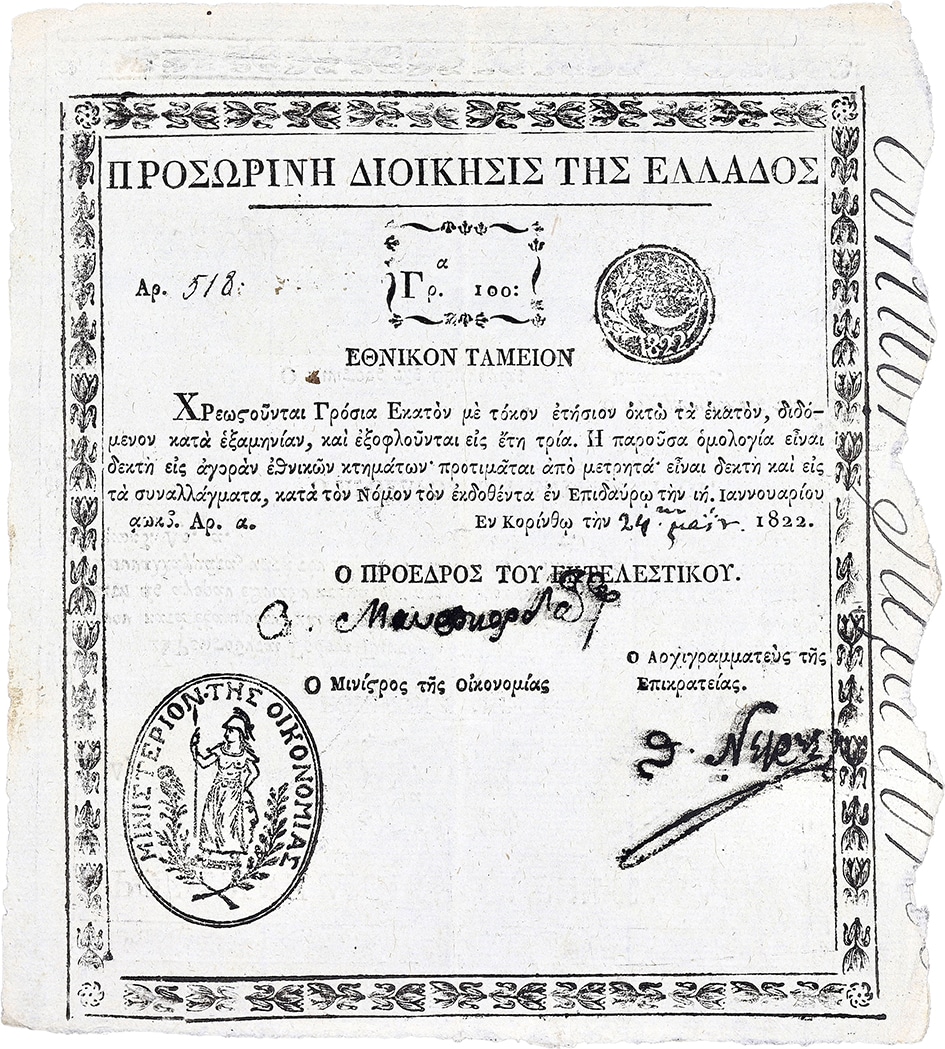 ΠΡΟΣΩΡΙΝΗ ΔΙΟΙΚΗΣΙΣ ΤΗΣ ΕΛΛΑΔΟΣ
Αρ. 518:
α
Γρ. 100:
1822
ΕΘΝΙΚΟΝ ΤΑΜΕΙΟΝ
Χρεωϛοῦνται Γρόσια Εκατὸν μὲ τόκον ἐτήσιον ὀκτὼ τὰ ἑκατὸν, διδό-
μενον κατὰ ἑξαμηνίαν, καὶ ἐξοφλοῦνται εἰς ἔτη τρία. Η παροῦσα ὁμολογία εἶναι
δεκτὴ εἰς ἀγορὰν ἐθνικῶν κτημάτων· προτιμᾶται ἀπὸ μετρητά· εἶναι δεκτὴ καὶ εἰς
τὰ συναλλάγματα, κατὰ τὸν Νόμον τὸν ἐκδοθέντα ἐν Επιδαύρῳ τὴν ιή. Ιαννουαρίου
αωκβ. Αρ. α.
Εν Κορίνθῳ τὴν 24 μαΐου. 1822.
Ο ΠΡΟΕΔΡΟΣ ΤΟΥ ΕΚΤΕΛΕΣΤΙΚΟΥ.
Ο Μινίϛρος τῆς Οἰκονομίας
Ο Αρχιγραμματεὺς τῆς
Επικρατείας.
Θ. Νέγρης
ΜΙΝΙΣΤΕΡΙΟΝ·ΤΗΣ ΟΙΚΟΝΟΜΙΑΣ